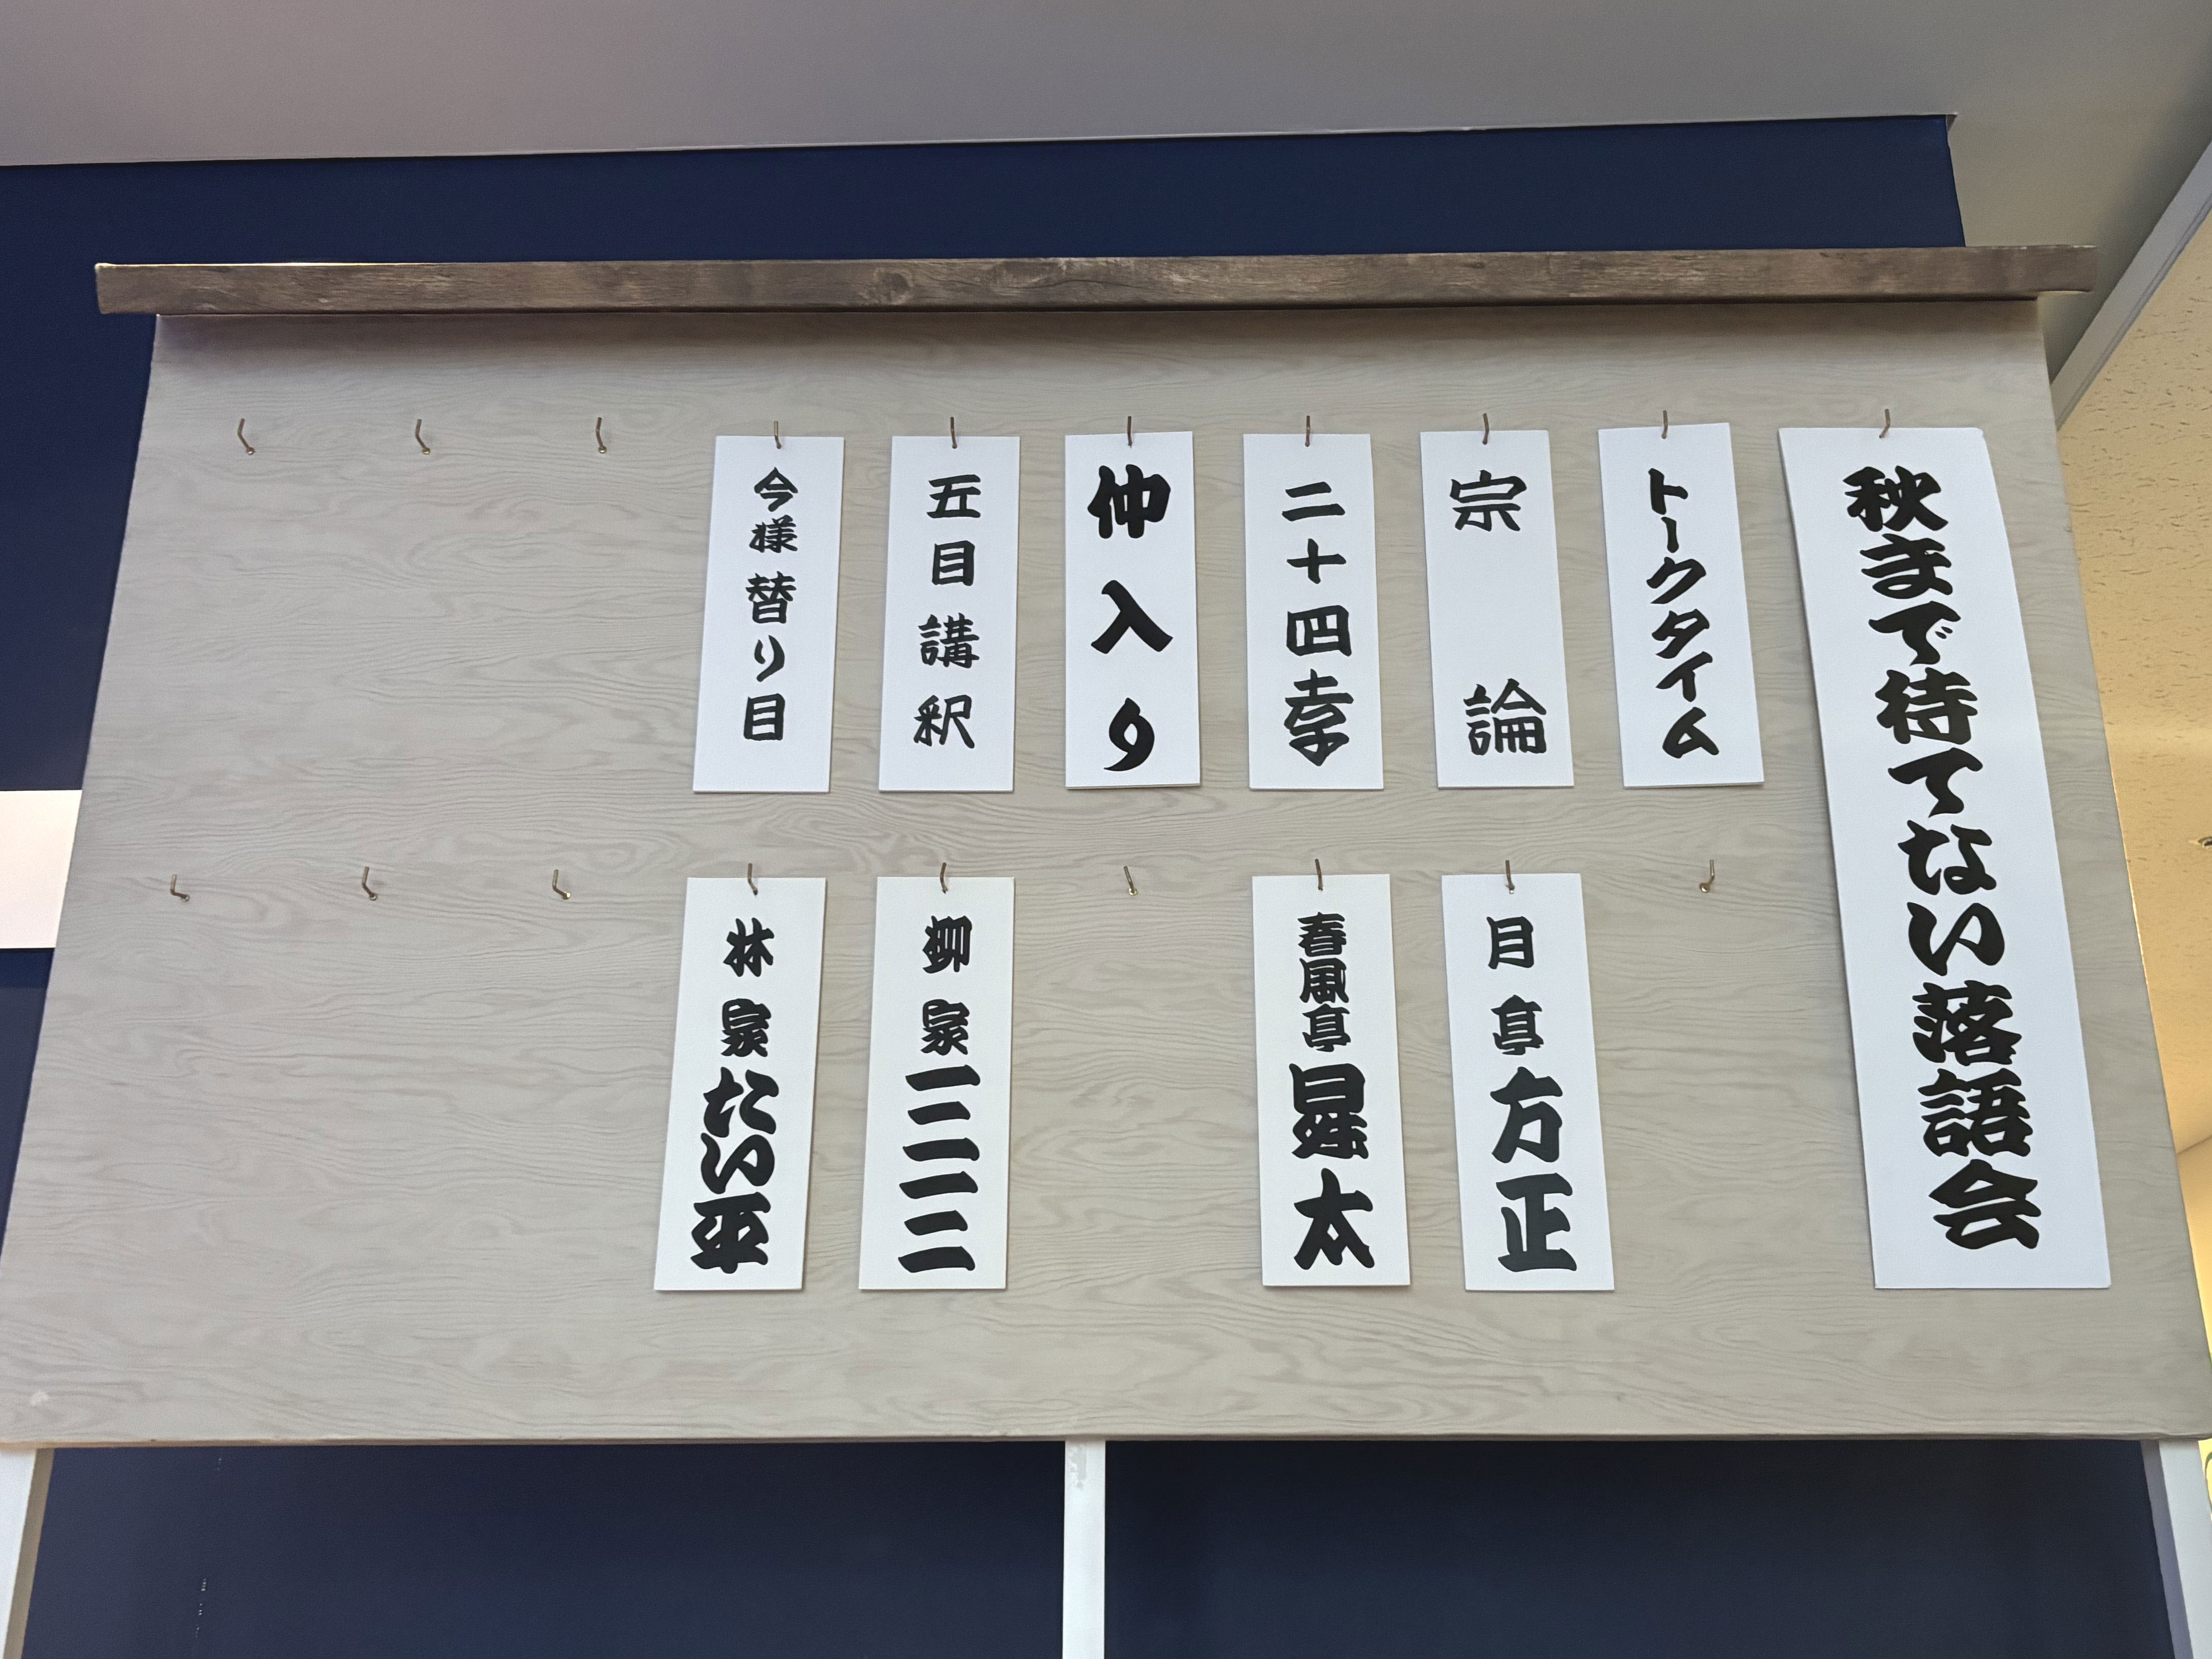 秋まで待てない落語会
トークタイム
宗論
月亭方正
二十四孝
春風亭昇太
仲入り
五目講釈
柳家三三
今様替り目
林家たい平